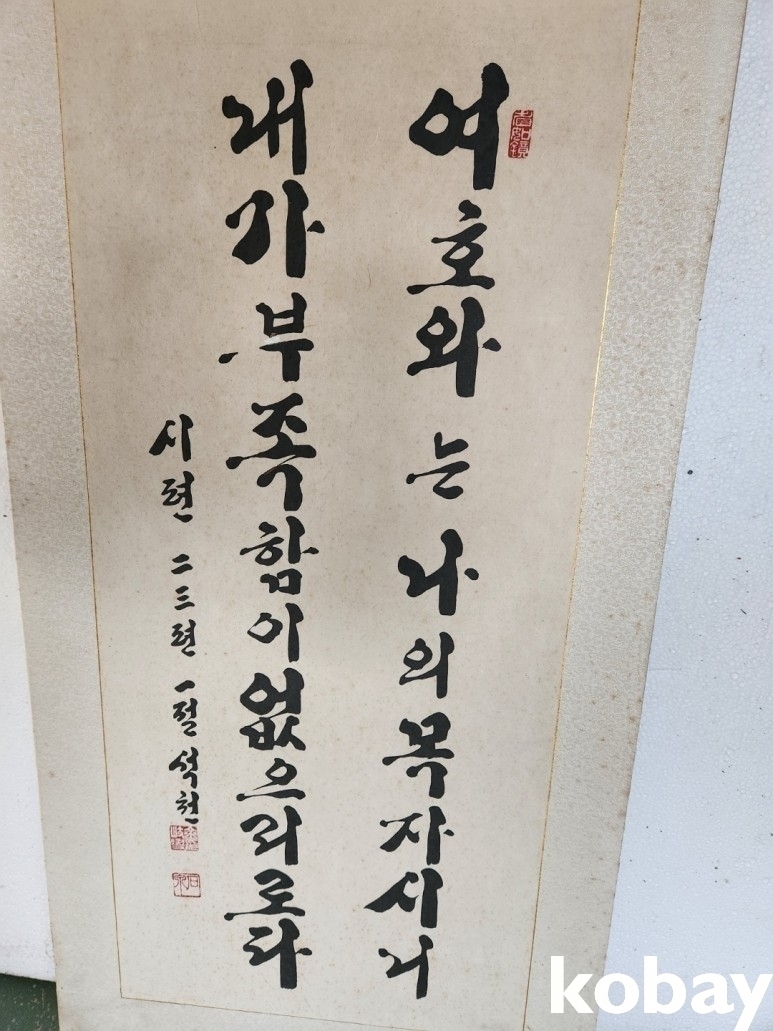 여호와는나의목자시니
내가부족함이없으리로다
시편 二三편 一절 석천
kobay